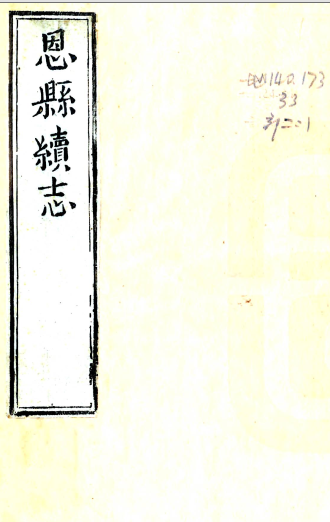 恩縣續志
140.173
33